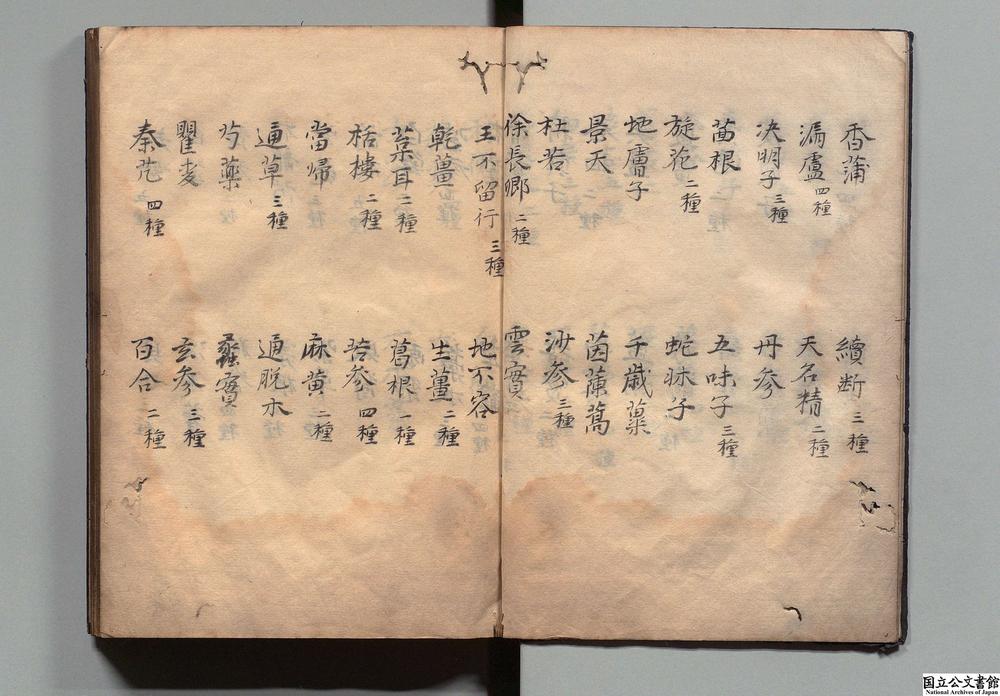 香蒲 續断三種
漏盧四種 天名精二種
决明子三種 丹参
茜根 五味子三種
旋花二種 蛇牀子
地膚子 千歳蘽
景天 茵蔯蒿
杜若 沙参三種
徐長卿二種 雲實
王不留行三種 地不容
乾薑 生薑二種
葈耳二種 葛根一種
栝樓二種 苦参四種
當歸 麻黄二種
通草三種 通脱木
芍藥 蠡實
瞿麦 玄参三種
秦艽四種 百合二種
国立公文書館
National Archives of Japan